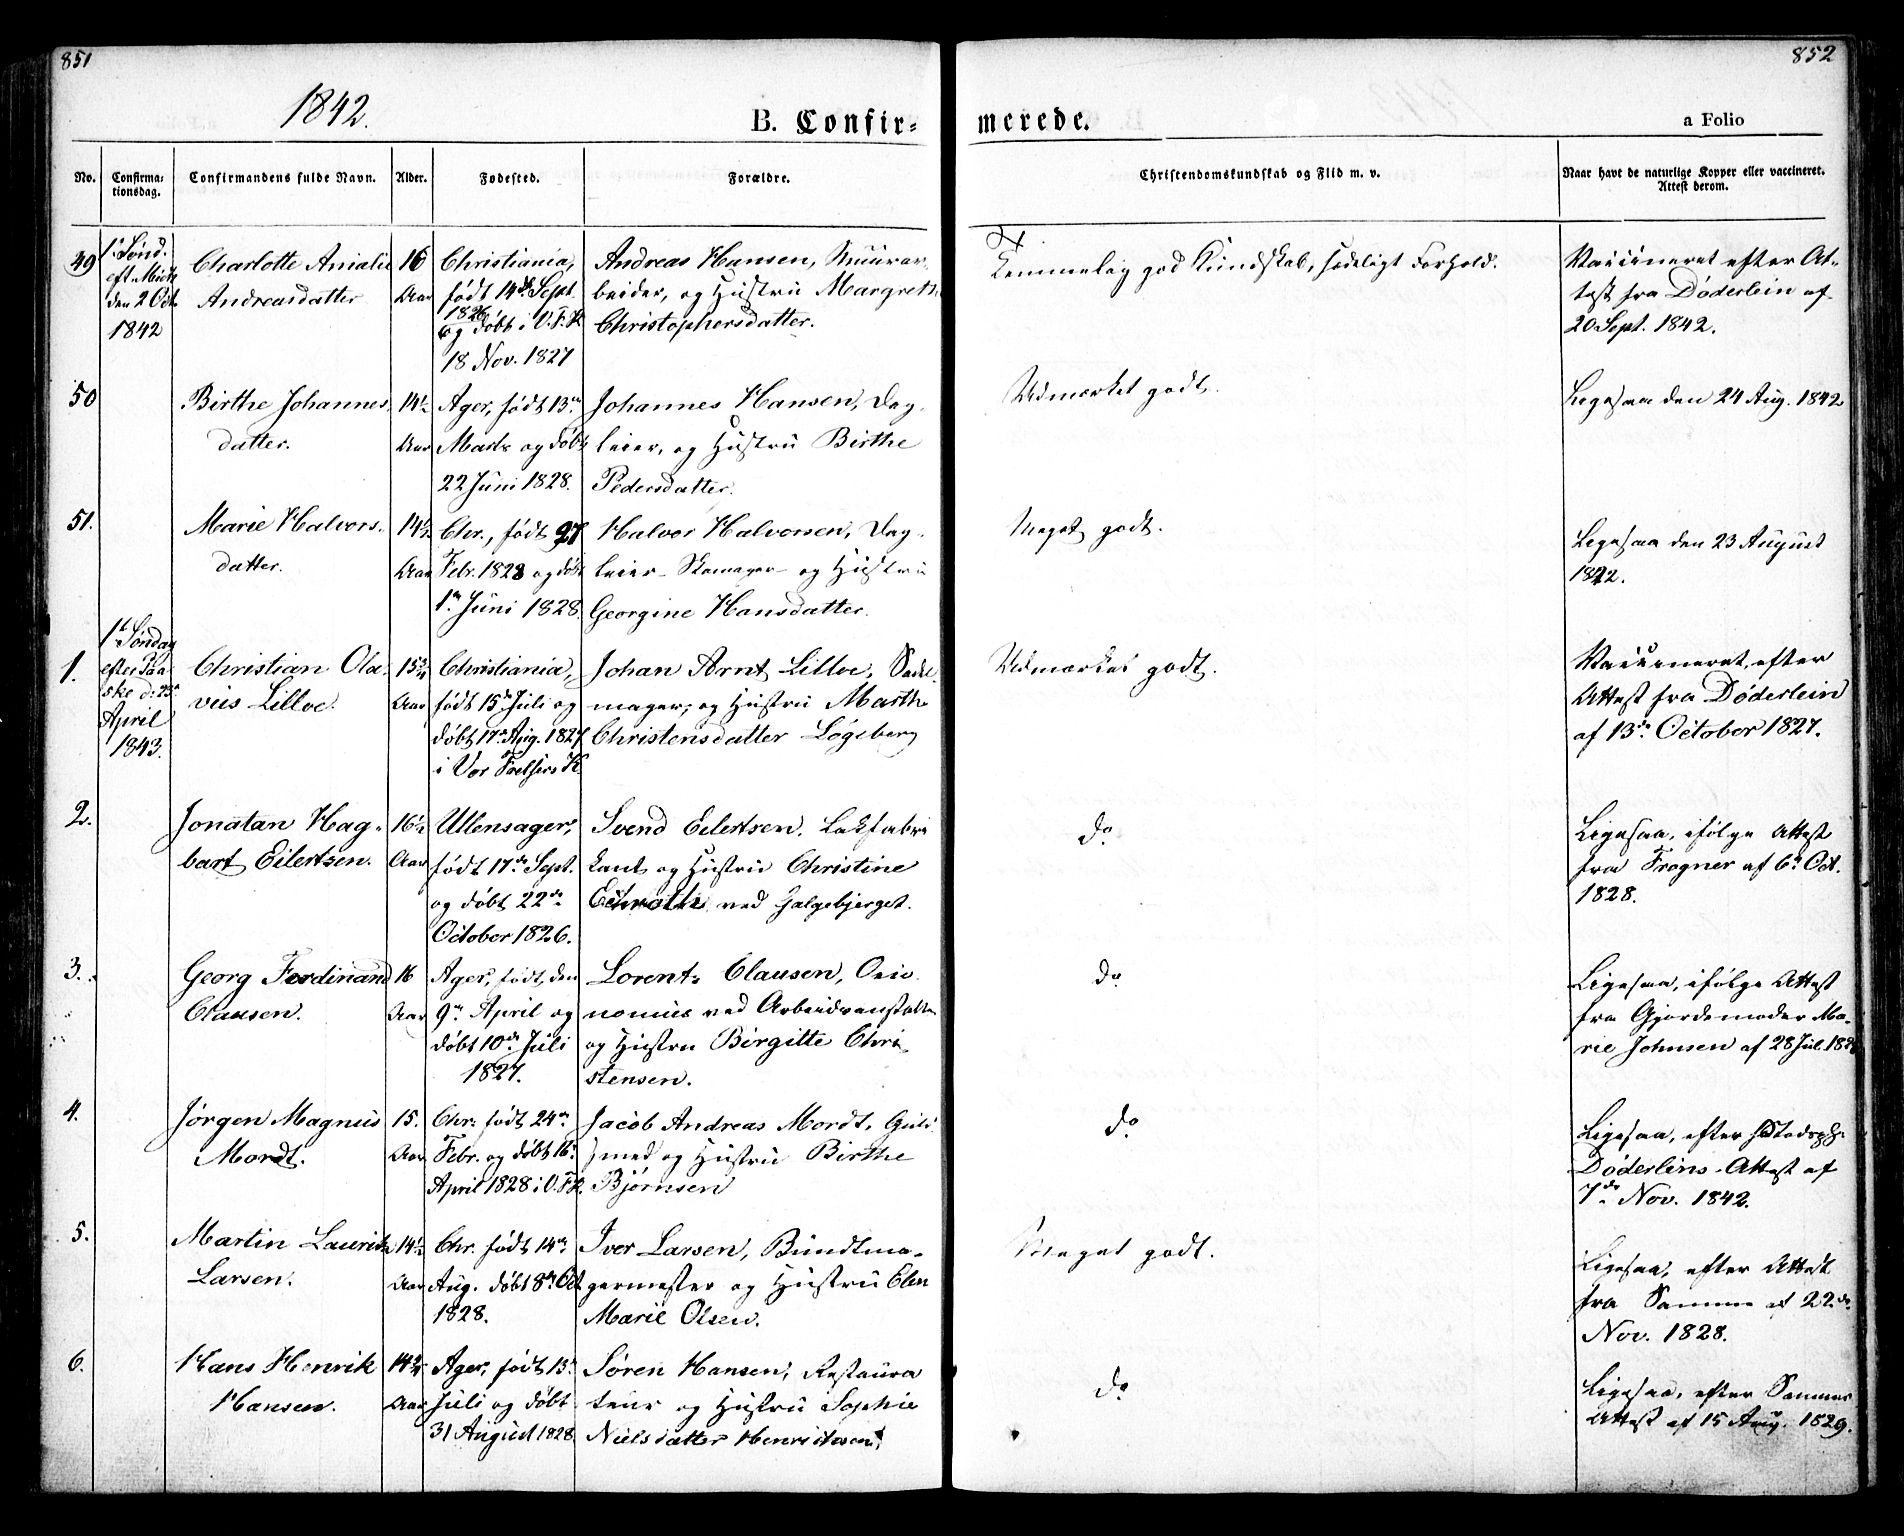 851
852
1842.
B. Confir-
merede.
a Folio
No.
Confirma-
tionsdag.
Confirmandens fulde Navn.
Alder.
Fødested.
Forældre.
Christendomskundskab og Flid m. v.
Naar havt de naturlige Kopper eller vaccineret.
Attest derom.
49
1ste Sønd.
eft. Mich.
den 2 Oct.
1842
Charlotte Amalie
Andreasdatter
16
Aar
Christiania,
født 14de Sept.
1826
og døbt i V. F. K
18 Nov. 1827
Andreas Hansen, Muurar-
beider, og Hustru Margrethe
Christophersdatter.
Temmelig god Kundskab, sædeligt Forhold.
Vaccineret efter At-
test fra Døderlein af
20 Sept. 1842.
50
Birthe Johannes-
datter.
14½
Aar
Ager, født 13de
Marts og døbt
22 Juni 1828.
Johannes Hansen, Dag-
leier, og Hustru Birthe
Pedersdatter.
Udmærket godt.
Ligesaa den 24 Aug. 1842
51.
Marie Halvors-
datter.
14½
Aar
Chr., født 27
Febr. 1828 og døbt
1ste Juni 1828.
Halvor Halvorsen, Dag-
leier - Skomager - og Hustru
Georgine Hansdatter.
Meget godt.
Ligesaa den 23 August
1842.
1.
1ste Søndag
efter Paa-
ske d: 23de
April
1843.
Christian Ola-
vius Lilloe.
15¾
Aar
Christiania,
født 15de Juli og
døbt 17de Aug. 1827
i Vor Frelsers K.
Johan Arnt Lilloe, Sadel-
mager, og Hustru Marthe
Christensdatter Løgeberg
Udmærket godt.
Vaccineret, efter
Attest fra Døderlein
af 13de October 1827.
2.
Jonatan Hag-
bart Eilertsen.
16½
Aar
Ullensager,
født 17de Sept.
og døbt 22de
October 1826.
Svend Eilertsen, Lakfabri-
kant og Hustru Christine
ved Galgebjerget.
do
Ligesaa, ifølge Attest
fra Frogner af 6te Oct.
1828.
3.
Georg Ferdinand
Clausen.
16
Aar
Ager, født den
9de April og
døbt 10de Juli
1827.
Lorents Clausen, Oeco-
nomus ved Arbeidsanstalten
og Hustru Birgitte Chri-
stensen.
do
Ligesaa, ifølge Attest
fra Gjordemoder Ma-
rie Johnsen af 28 Jul.
4.
Jørgen Magnus
Mordt.
15.
Aar
Chr. født 24de
Febr. og døbt 16de
April 1828 i V. F. K.
Jacob Andreas Mordt, Guld-
smed og Hustru Birthe
Bjørnsen
do
Ligesaa, efter Stadsph:
Døderlins Attest af
7de Nov. 1842.
5.
Martin Lauritz
Larsen.
14½
Aar
Chr. født 14de
Aug. døbt 8de Oct
1828.
Iver Larsen, Bundtma-
germester og Hustru Elen
Marie Olsen.
Meget godt.
Ligesaa, efter Attest
fra Samme af 22de
Nov. 1828.
6.
Hans Henrik
Hansen.
14¾
Aar
Ager, født 13de
Juli og døbt
31 August 1828
Søren Hansen, Restaura-
teur og Hustru Sophie
Nielsdatter Henriksen.
do
Ligesaa, efter Sammes
Attest af 15 Aug. 1829.